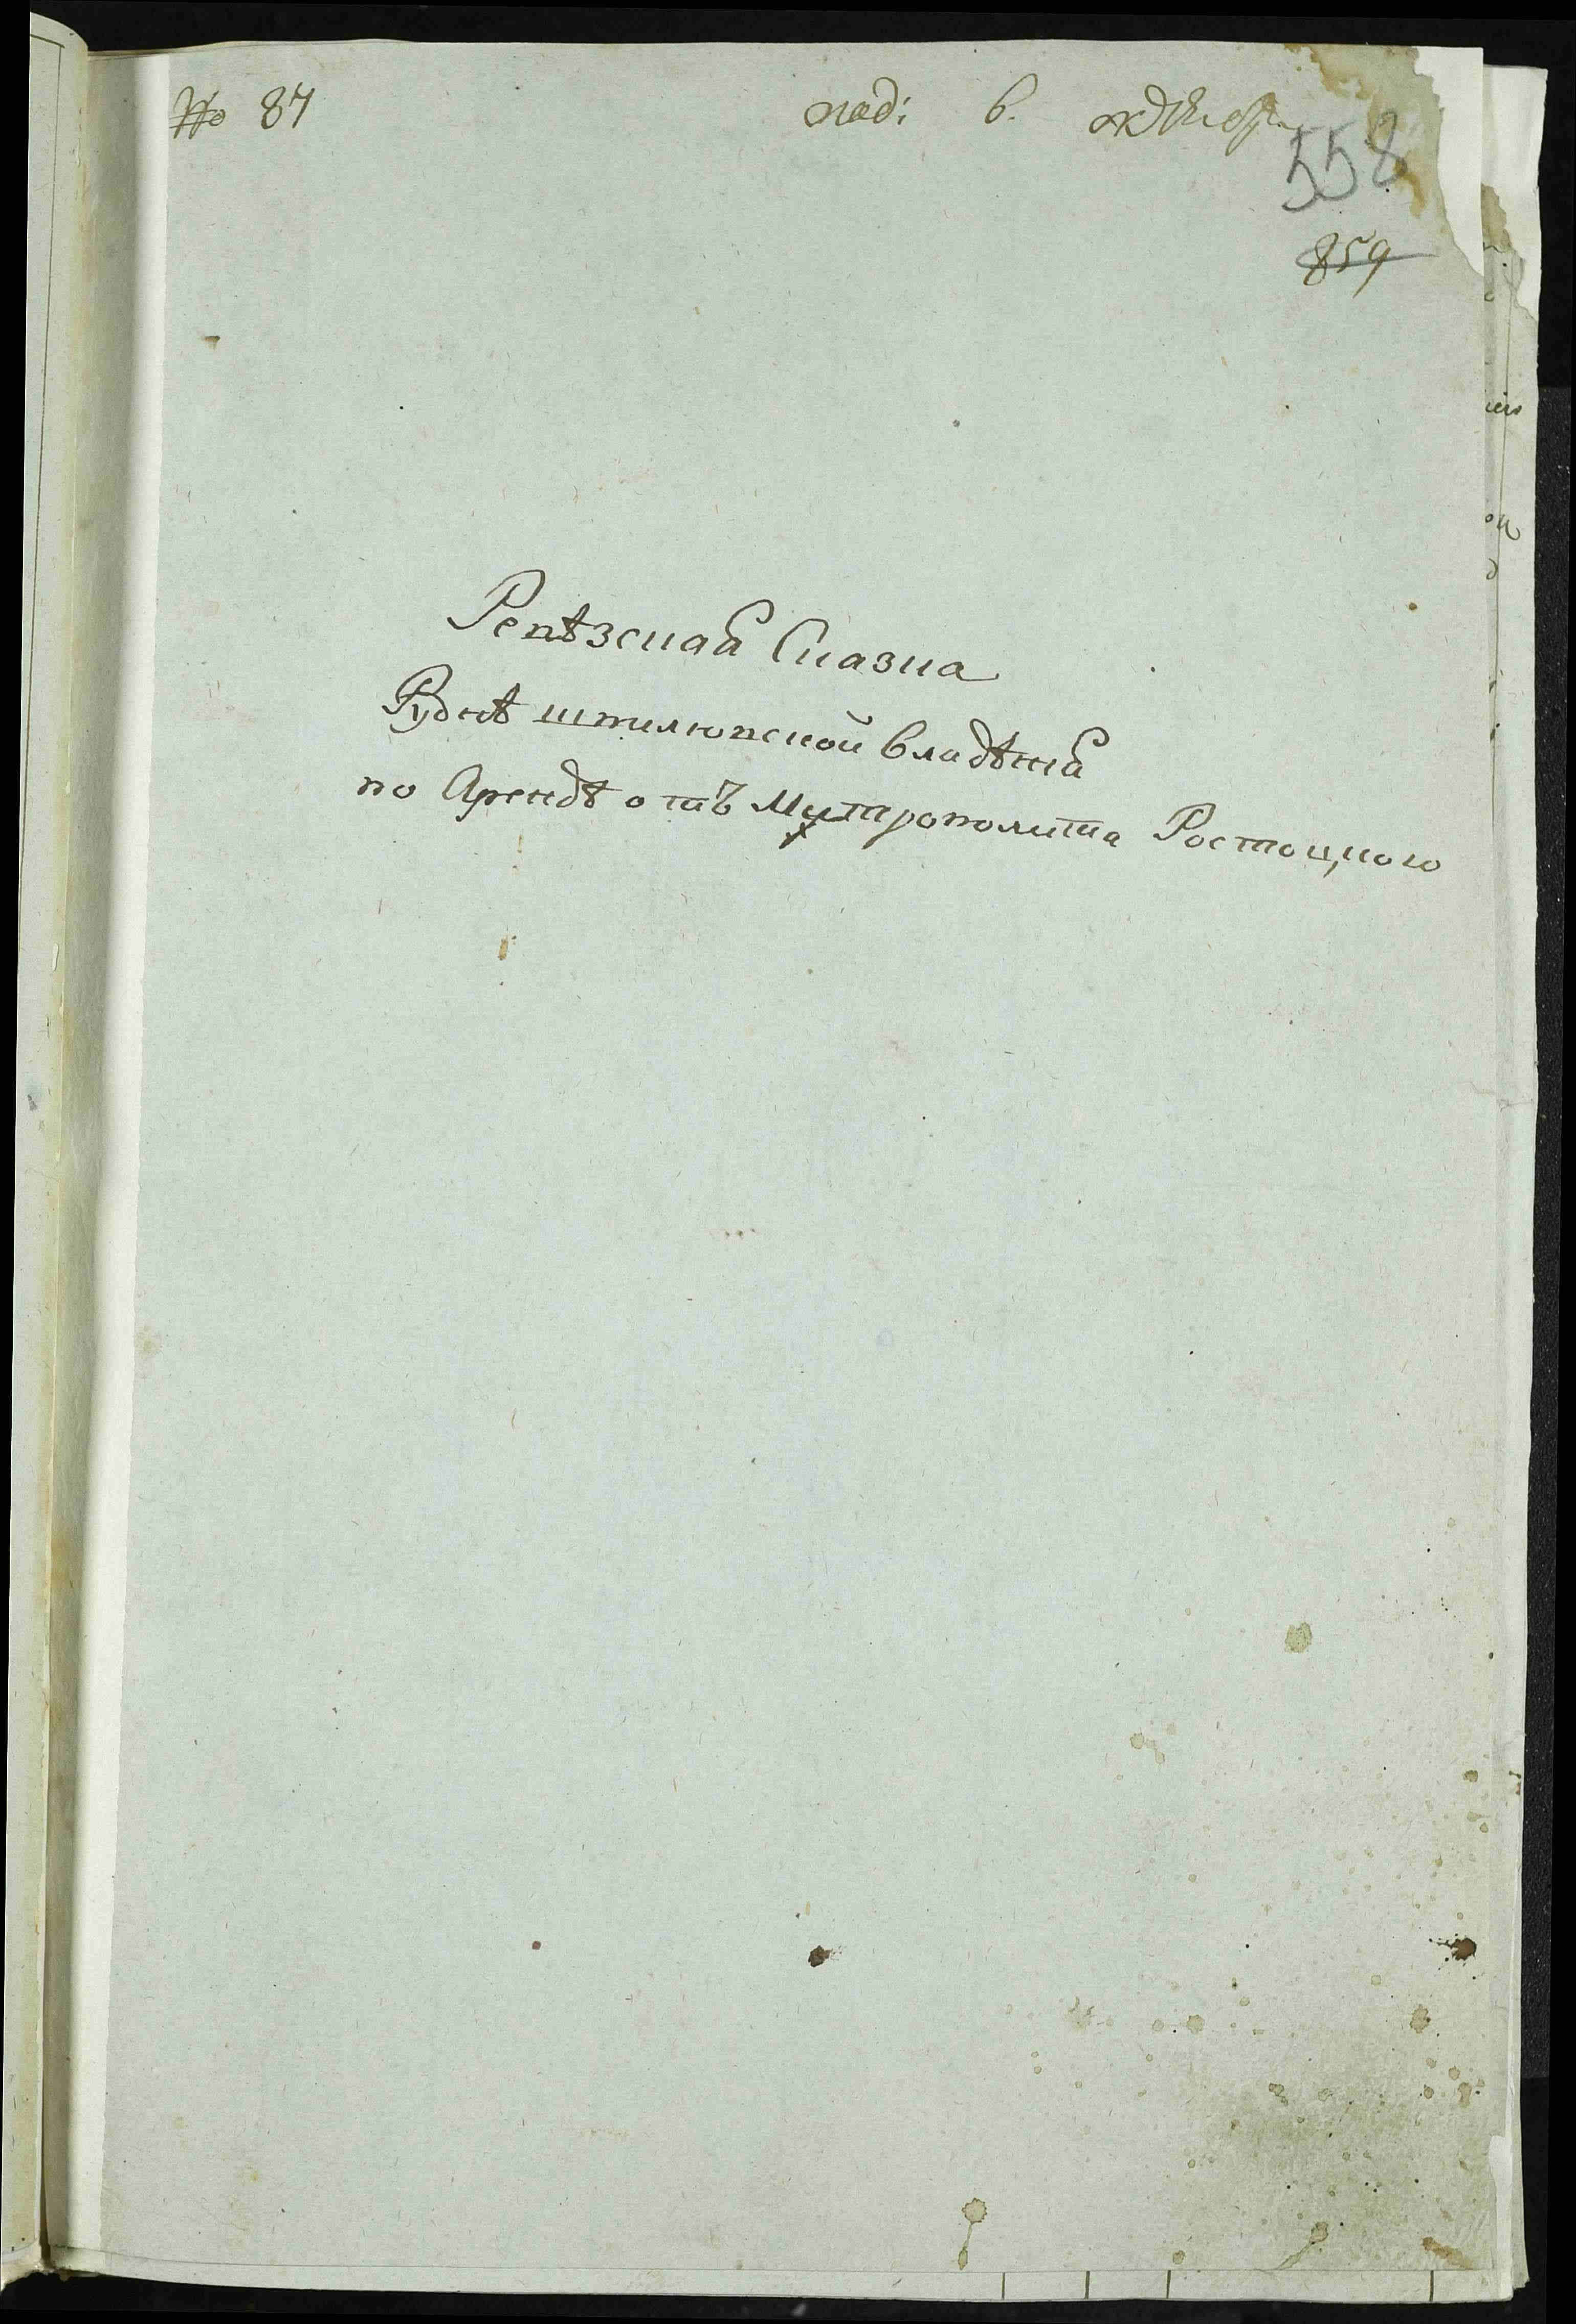 № 87 под: 6. октября
558
859
Ревѣзская Сказка
Руднѣ шпилювской владѣнія
по Арендѣ отъ Митрополита Ростоцкого